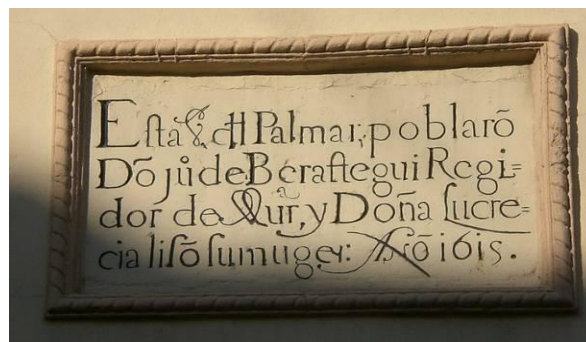 Esta V.ᵃ dl Palmar, poblarõ
Dõ juº de Berastegui Regi=
dor de Murª, y Doña Lucre=
cia lisõ su muger: Año 1615.